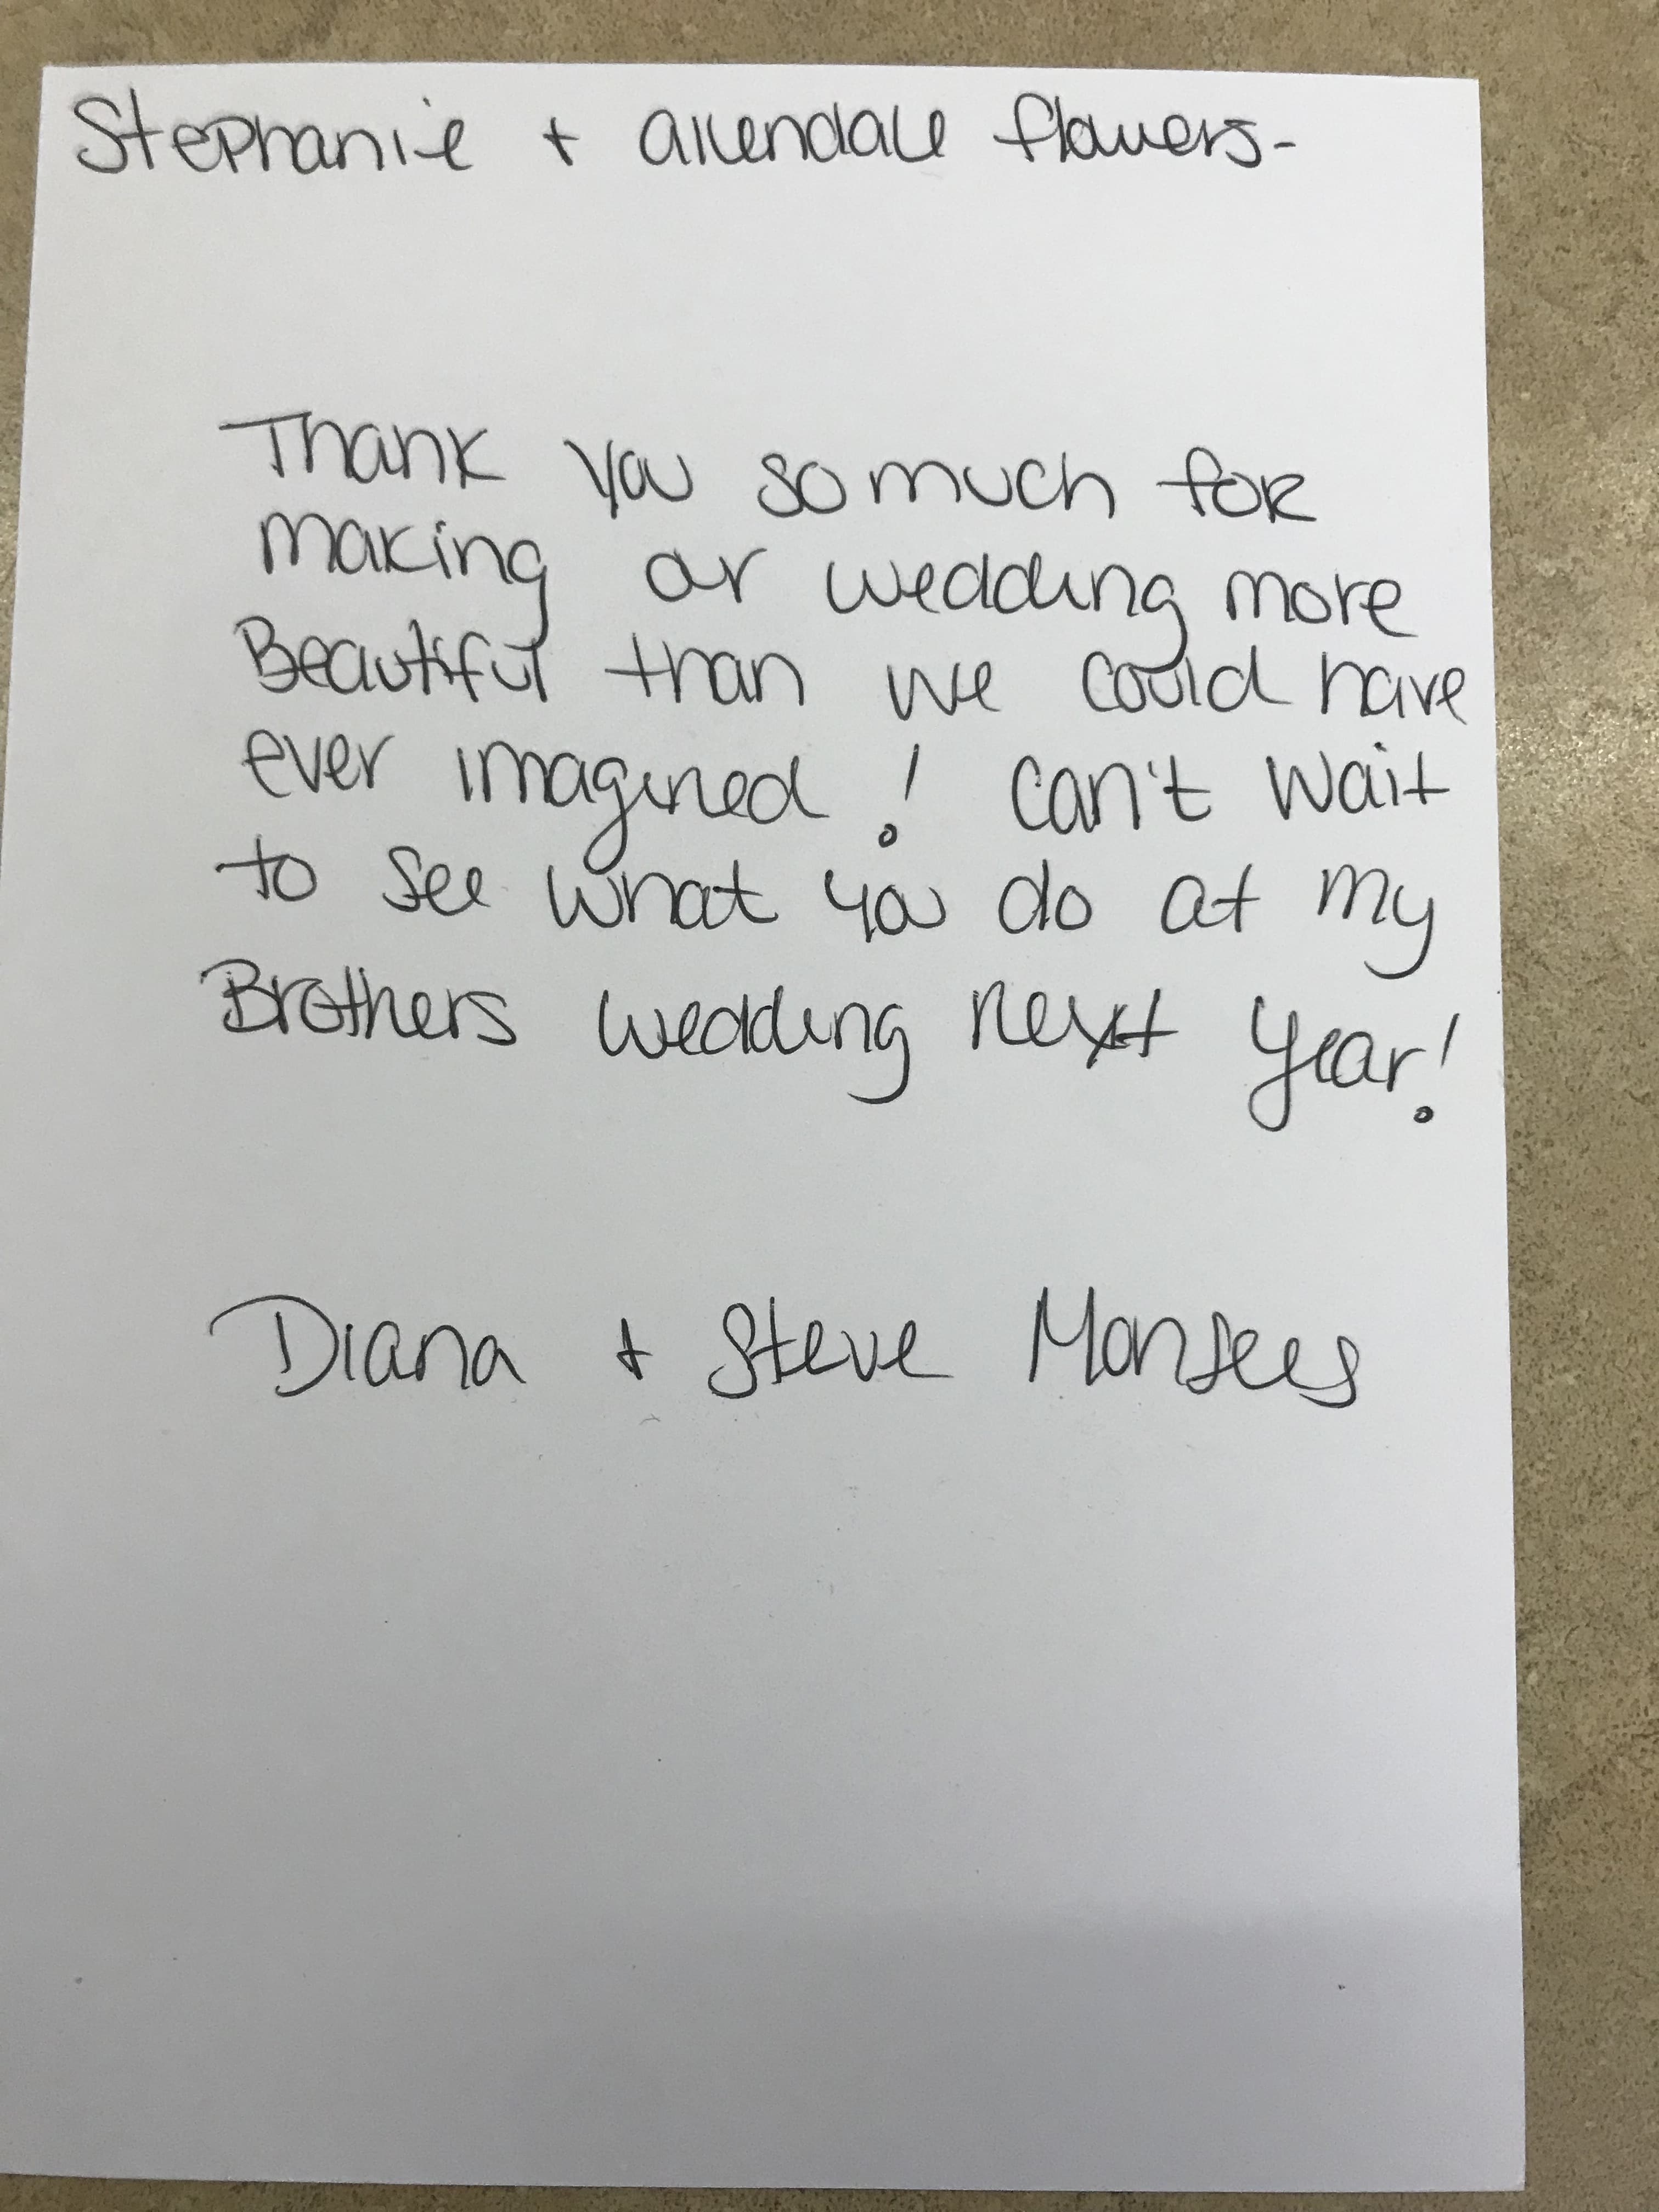 Stephanie + allendale flowers-
Thank you so much for
making our wedding more
Beautiful than we could have
ever imagined! Can't wait
to see what you do at my
Brothers wedding next year!
Diana + Steve Monsees